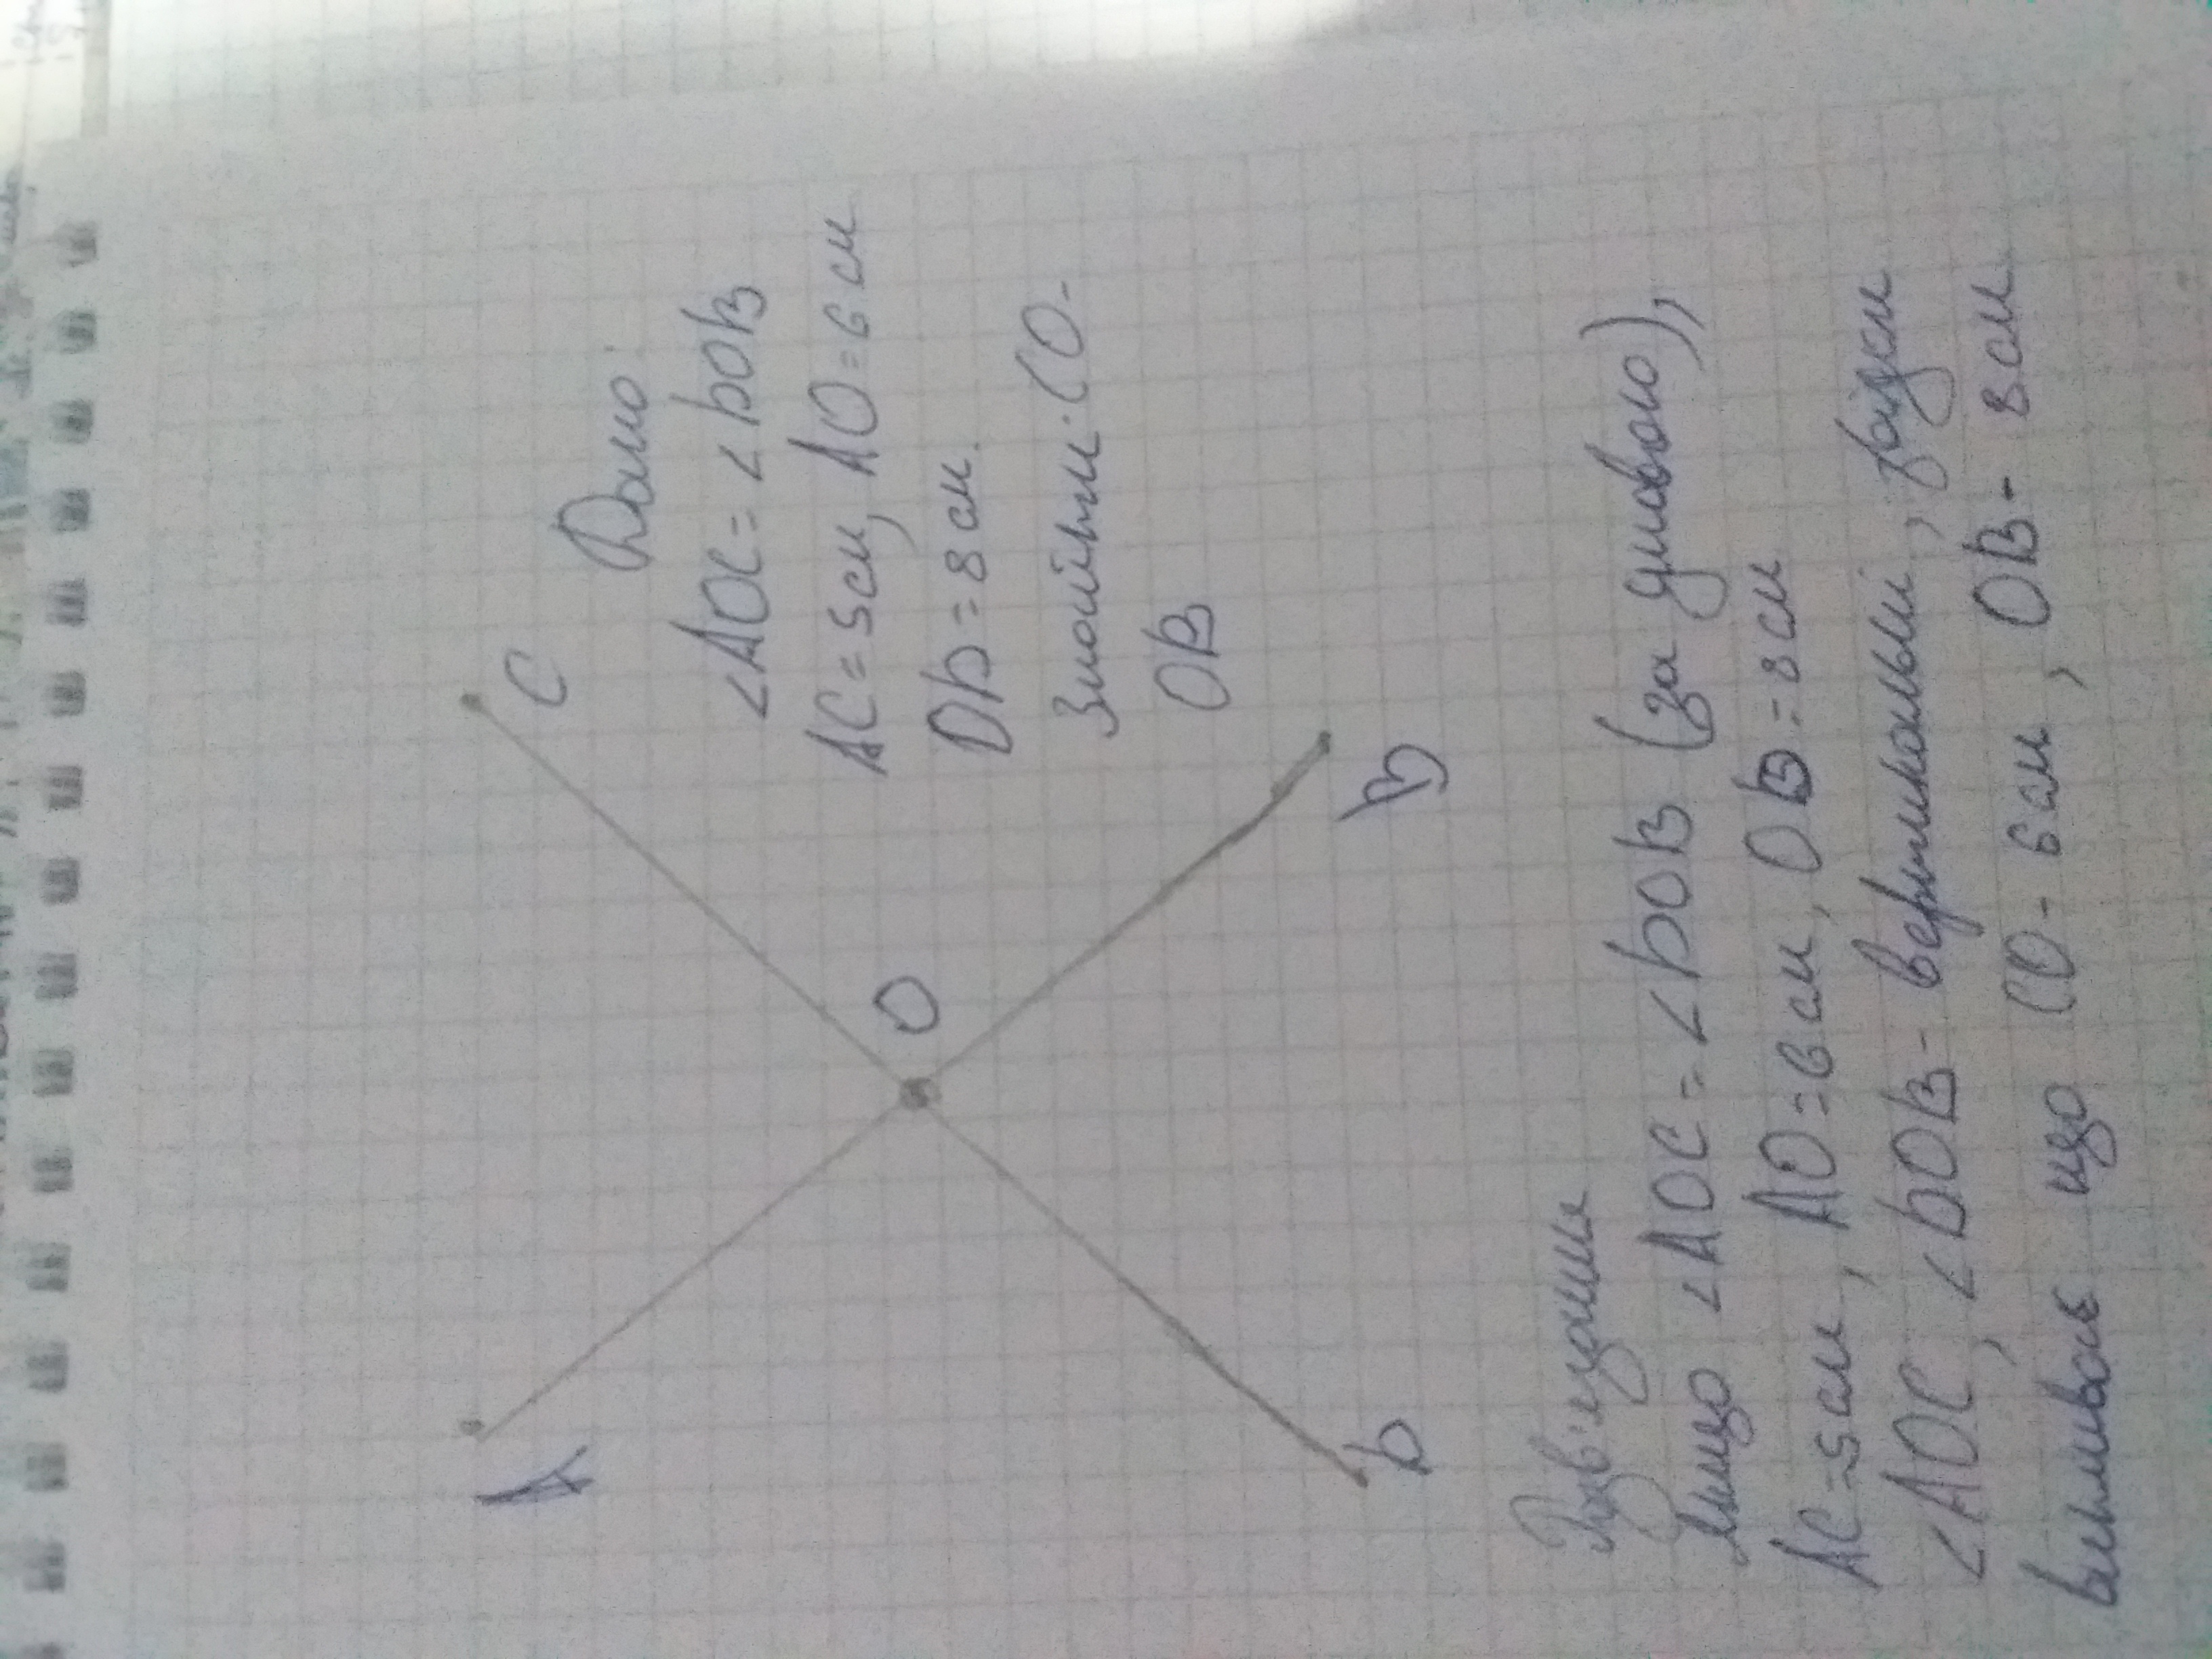 A
C
O
D
B
Дано:
∠AOC = ∠DOB
AC = 5см, AO = 6 см
DB = 8 см.
Знайти: CO-
OB
Розв'язання
Якщо ∠AOC = ∠DOB (за умовою),
AC = 5см, AO = 6 см, OB = 8 см
∠AOC, ∠DOB - вертикальні,
що CO - 6 см, OB - 8 см